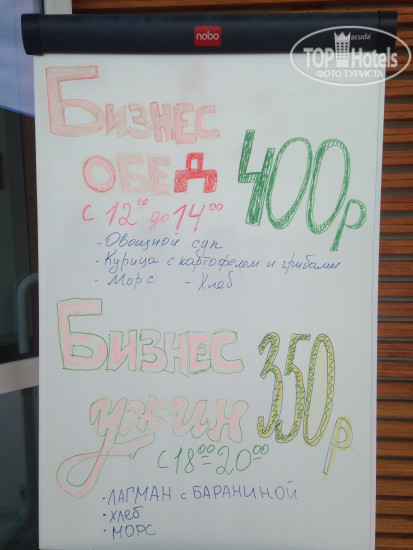 nobo
Baracuda
TOP Hotels
ФОТО ТУРИСТА
Бизнес
ОБЕД
400р
с 12⁰⁰ до 14⁰⁰
- Овощной суп
- Курица с картофелем и грибами
- Морс - Хлеб
Бизнес
ужин
350р
с 18⁰⁰-20⁰⁰
· ЛАГМАН с БАРАНИНОЙ
· ХЛЕБ
· МОРС